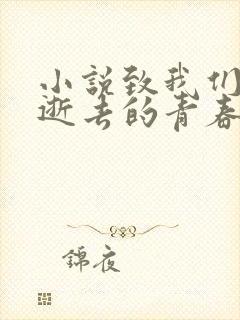 小説致我们
逝去的青春
錦夜